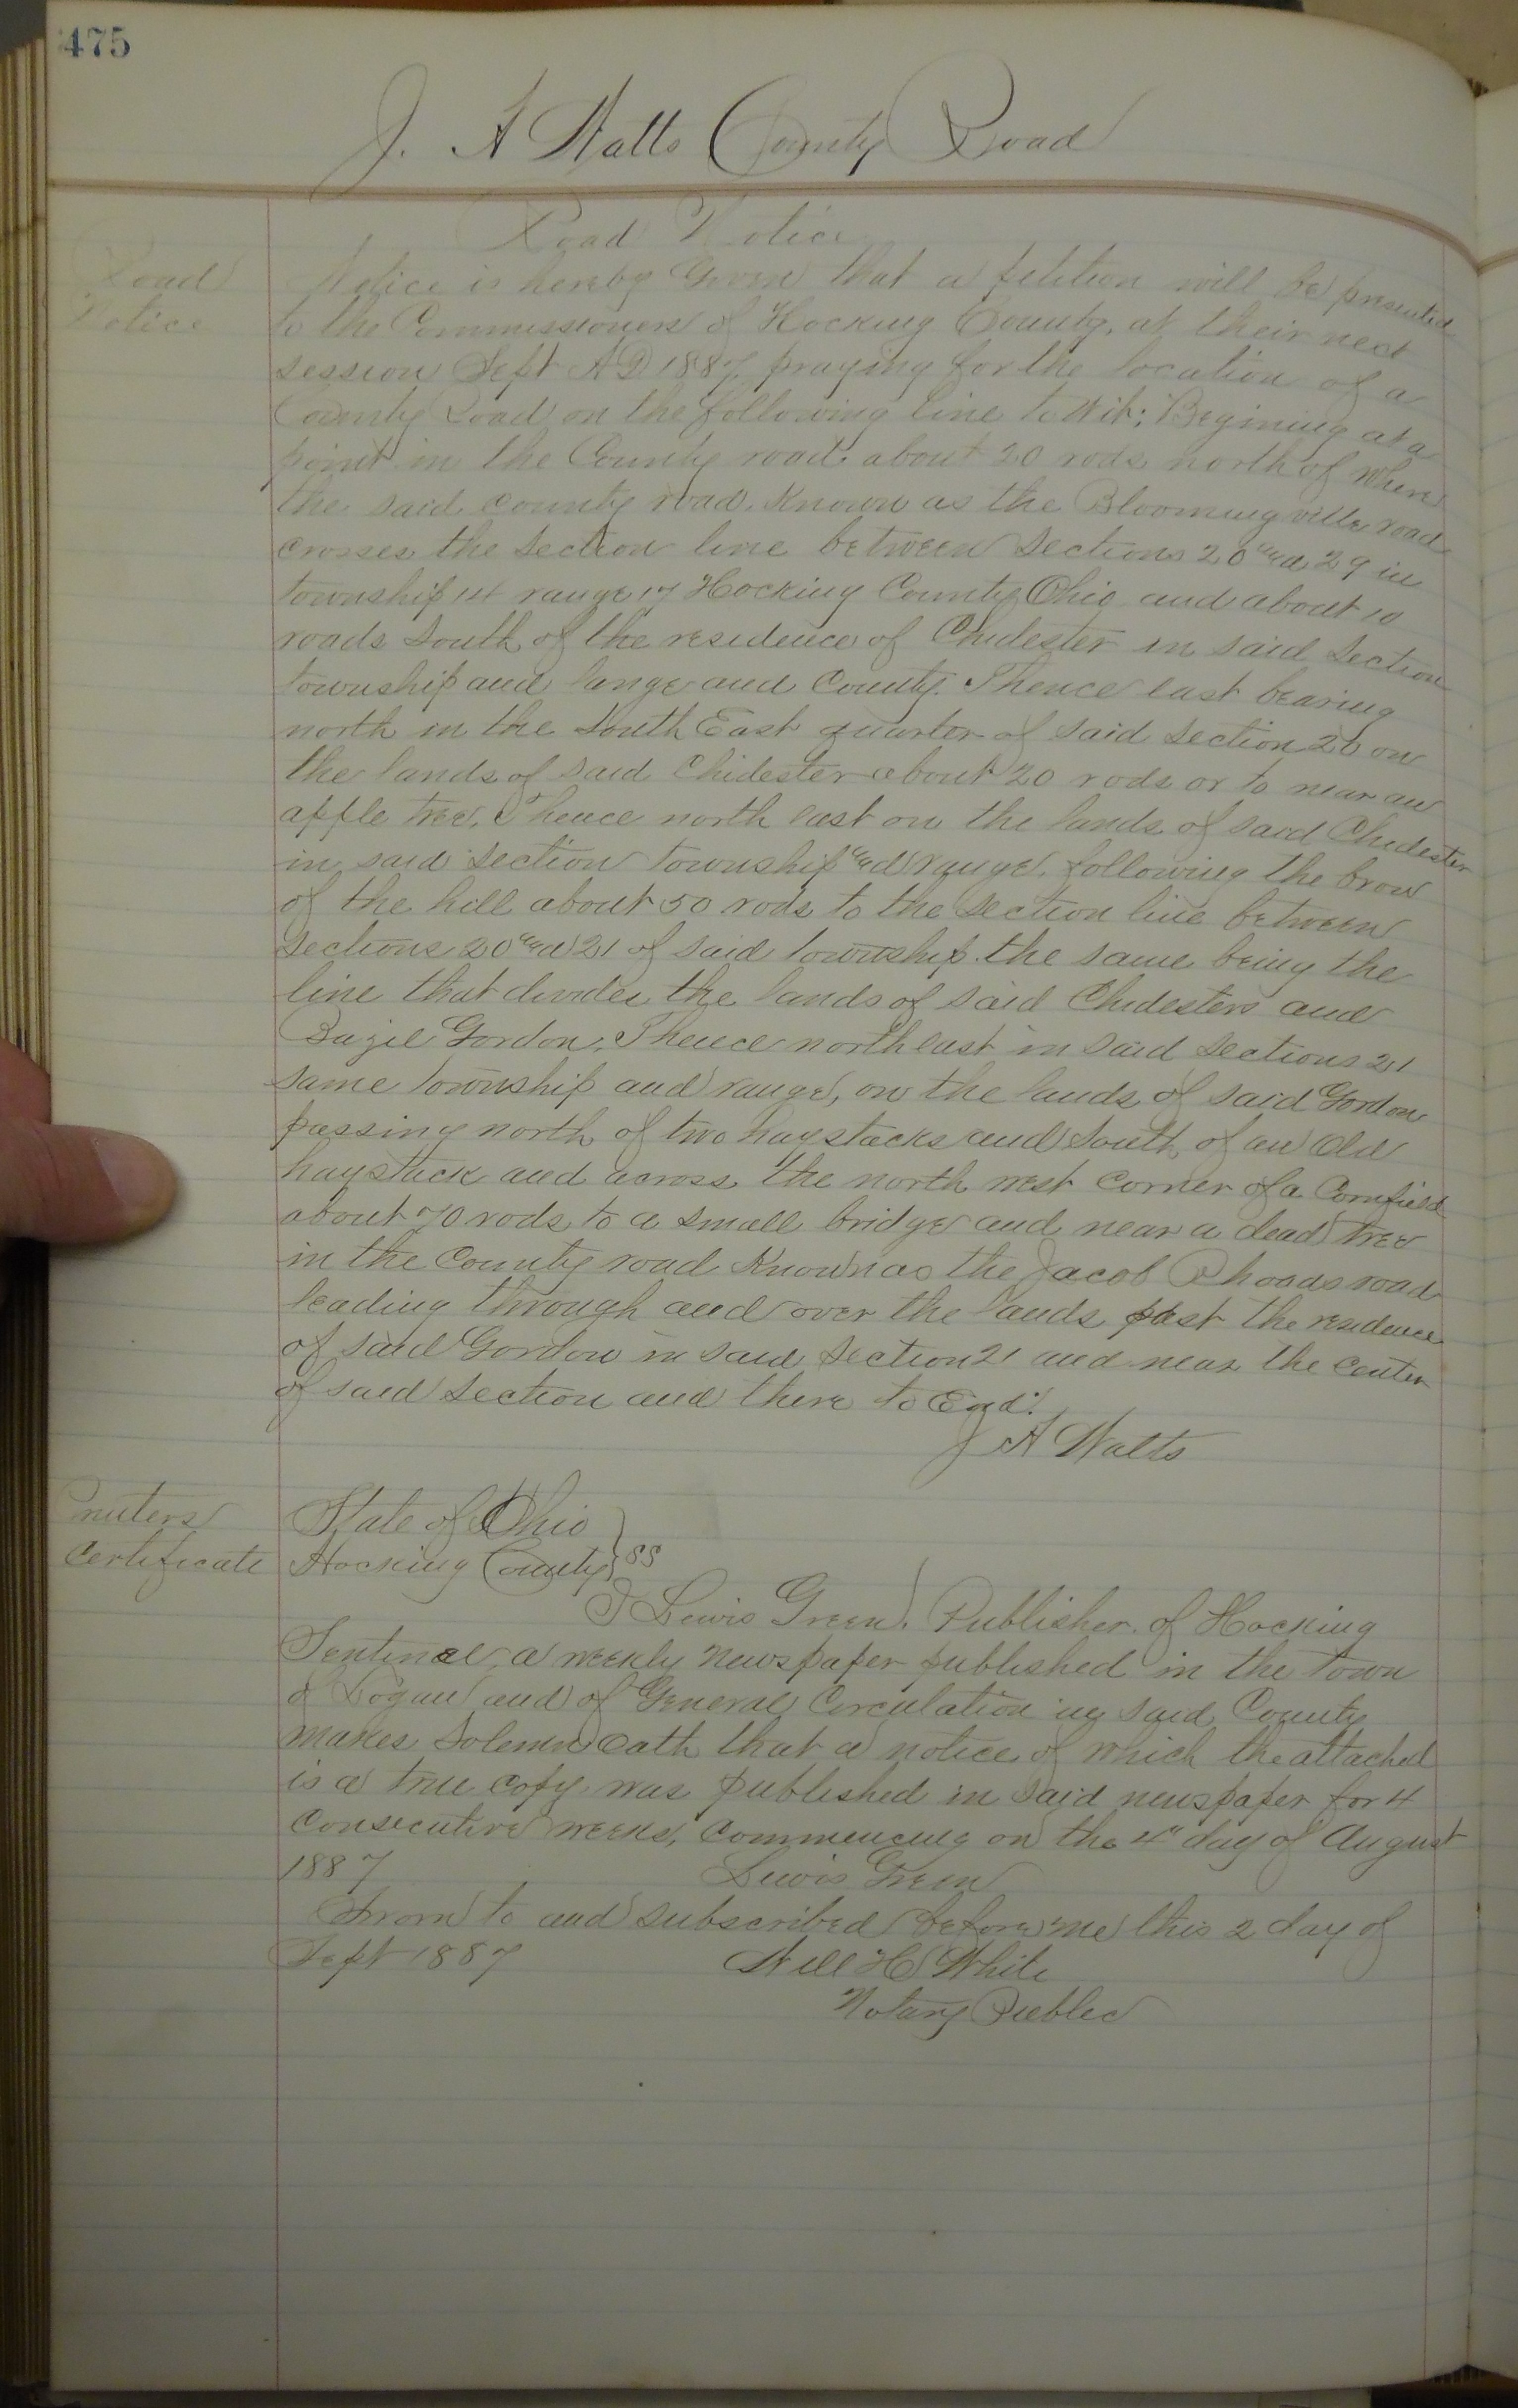 475
J. A Walts County Road
Road Notice
Road
Notice
Notice is hereby Given that a petition will be presented
to the Commissioners of Hocking County, at their next
session Sept AD 1887 praying for the location of a
County Road on the following line to Wit: Begining at a
point in the County road about 20 rods north of where
the said county road Known as the Bloomingville road
crosses the section line between sections 20 and 29 in
township 14 range 17 Hocking County Ohio and about 10
roads south of the residence of Chidester in said section
township and range and County. Thence east bearing
north in the South East quarter of said section 20 on
the lands of said Chidester about 20 rods or to near an
apple tree. Thence north east on the lands of said Chidester
in said section township and range, following the brow
of the hill about 50 rods to the section line between
sections 20 and 21 of said township the same being the
line that divides the lands of said Chidesters and
Bazil Gordon. Thence northeast in said sections 21
same township and range, on the lands of said Gordon
passing north of two haystacks and south of an old
haystack and across the north west corner of a Cornfield
about 70 rods to a small bridge and near a dead tree
in the County road Known as the Jacob Rhoads road
leading through and over the lands past the residence
of said Gordon in said section 21 and near the center
of said section and there to End.
J A Walts
Printers
Certificate
State of Ohio
Hocking County } SS
I Lewis Green, Publisher of Hocking
Sentinel, a weekly newspaper published in the town
of Logan and of General Circulation in said County
makes solemn oath that a notice of which the attached
is a true copy was published in said newspaper for 4
consecutive weeks, commencing on the 4" day of August
1887 Lewis Green
Sworn to and subscribed before me this 2 day of
Sept 1887 Will H White
Notary Public